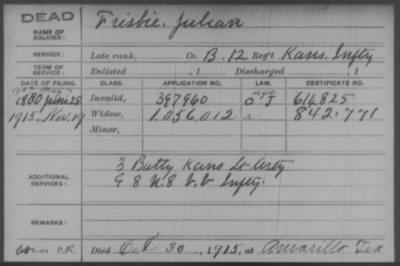 DEAD
NAME OF SOLDIER: Frisbie, Julian
SERVICE: Late rank, Co. B. 12 Reg't Kans. Infty
TERM OF SERVICE: Enlisted , 1 Discharged , 1
DATE OF FILING. CLASS. APPLICATION NO. LAW. CERTIFICATE NO.
1880 June 28 Invalid, 397960 614825
1915. Nov. 19 Widow, 1.056.012 a 842.771
Minor,
ADDITIONAL SERVICES: 3 Batty Kans Lt. Arty
G 8 U.S V.V Infty.
REMARKS:
Died Oct 30, 1915, at Amarillo Tex